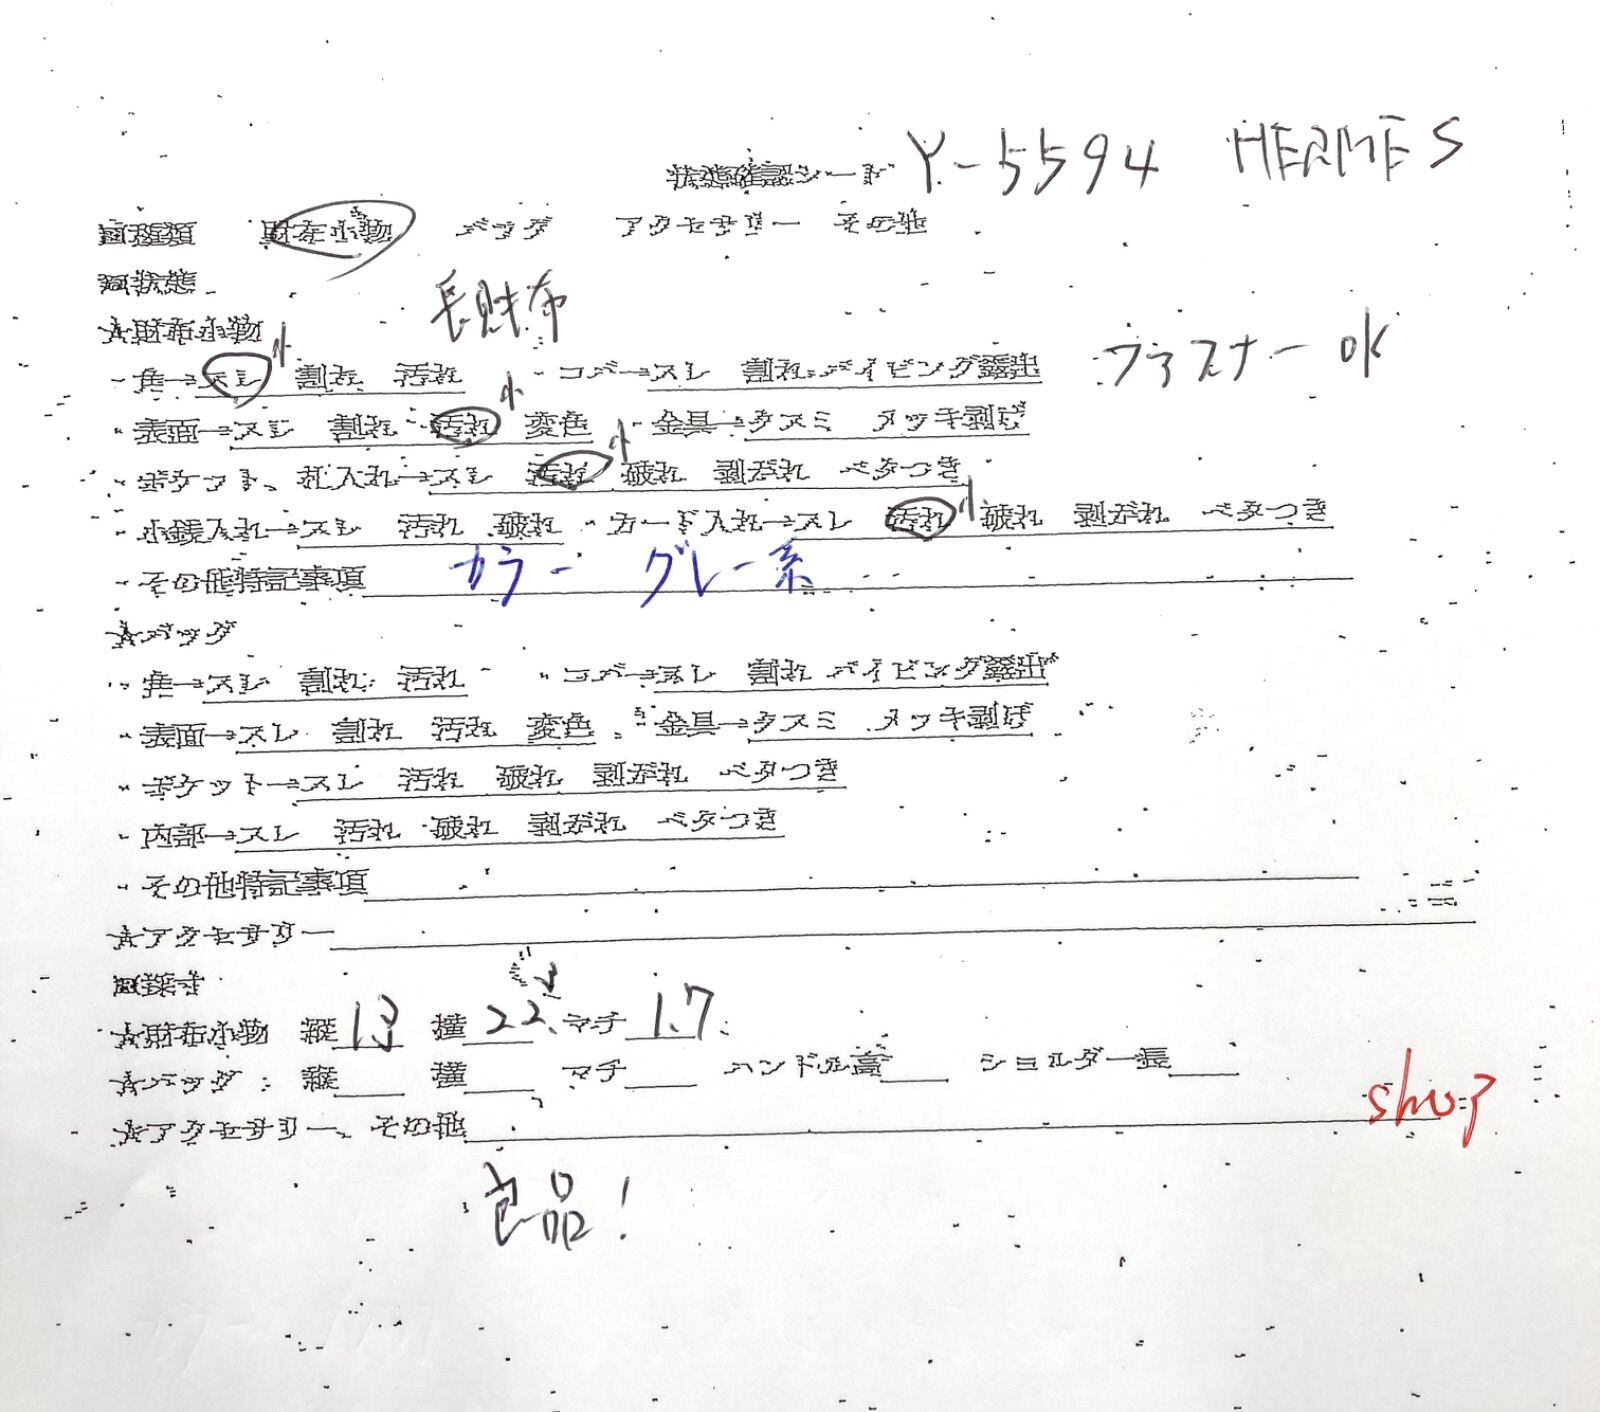 状態確認シート Y-5594 HERMES
■種類 財布小物 バッグ アクセサリー その他
■状態
長財布
★財布小物
・角→スレ小 割れ 汚れ ・コバ→スレ 割れ パイピング露出 ファスナーOK
・表面→スレ 割れ 汚れ小 変色 ・金具→クスミ メッキ剥げ
・ポケット、札入れ→スレ 汚れ小 破れ 剥がれ ベタつき
・小銭入れ→スレ 汚れ 破れ ・カード入れ→スレ 汚れ小 破れ 剥がれ ベタつき
・その他特記事項 カラー グレー系
★バッグ
・角→スレ 割れ 汚れ ・コバ→スレ 割れ パイピング露出
・表面→スレ 割れ 汚れ 変色 ・金具→クスミ メッキ剥げ
・ポケット→スレ 汚れ 破れ 剥がれ ベタつき
・内部→スレ 汚れ 破れ 剥がれ ベタつき
・その他特記事項
★アクセサリー
■採寸
★財布小物 縦 13 横 22 マチ 1.7
★バッグ：縦 横 マチ ハンドル高 ショルダー長
★アクセサリー、その他
良品！